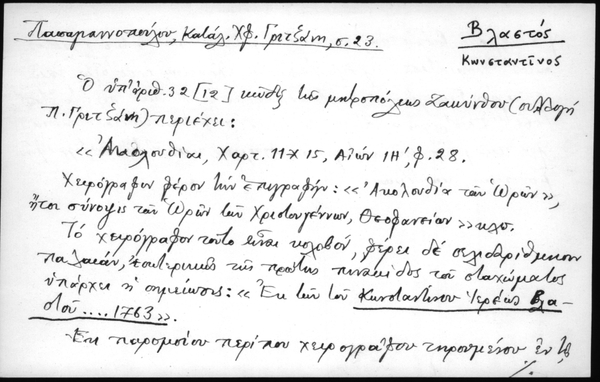 Παπαγιαννοπούλου, Κατάλ. Χφ. Γριτζάνη, σ. 23.
Βλαστός
Κωνσταντῖνος
Ὁ ὑπ' ἀριθ. 32 [12] κῶδιξ τῆς μητροπόλεως Ζακύνθου (συλλογή
Π. Γριτζάνη) περιέχει:
«Ἀκολουθίαι, Χαρτ. 11 Χ 15, Αἰών ΙΗ', φ. 28.
Χειρόγραφον φέρον τὴν ἐπιγραφήν: «Ἀκολουθία τῶν Ὡρῶν»,
ἤτοι σύνοψις τῶν Ὡρῶν τῶν Χριστουγέννων, Θεοφανείων» κλπ.
Τὸ χειρόγραφον τοῦτο εἶναι κολοβόν, φέρει δὲ σελιδαρίθμησιν
παλαιάν, ἐσωτερικῶς τῆς πρώτης πινακίδος τοῦ σταχώματος
ὑπάρχει ἡ σημείωσις: «Ἐκ τῶν τοῦ Κωνσταντίνου Ἱερέως Βλα-
στοῦ .... 1763».
Ἐκ παρομοίου περίπου χειρογράφου τηρουμένου ἐν τῇ
./.